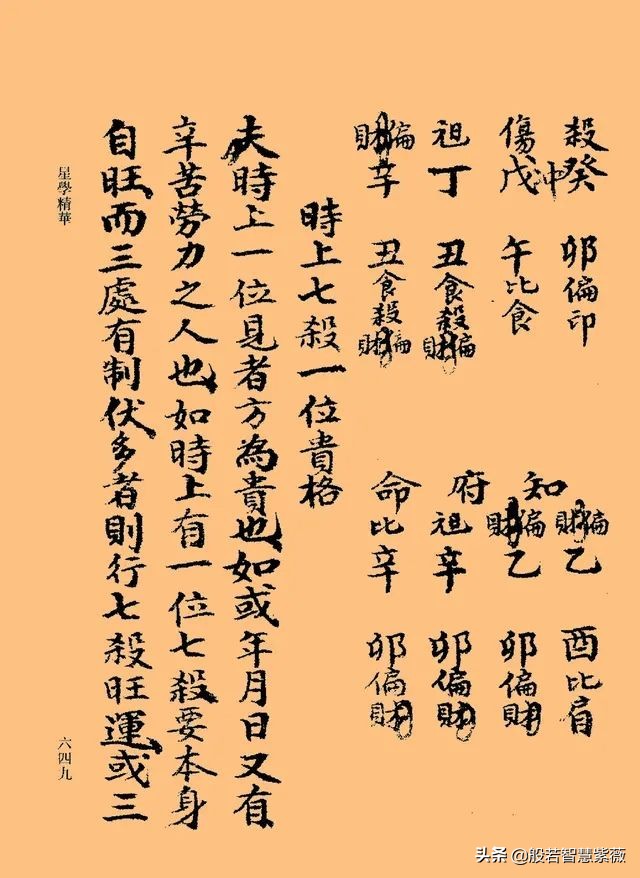 殺癸 卯偏印
沖
傷戊 午比食
祖丁 丑食殺偏財
偏財辛 丑食殺偏財
知府命
偏財乙 酉比肩
偏財乙 卯偏財
祖辛 卯偏財
比辛 卯偏財
時上七殺一位貴格
夫時上一位見者方為貴也如或年月日又有
辛苦勞力之人也如時上有一位七殺要本身
自旺而三處有制伏多者則行七殺旺運或三
星學精華
六四九
头条 @般若智慧紫薇